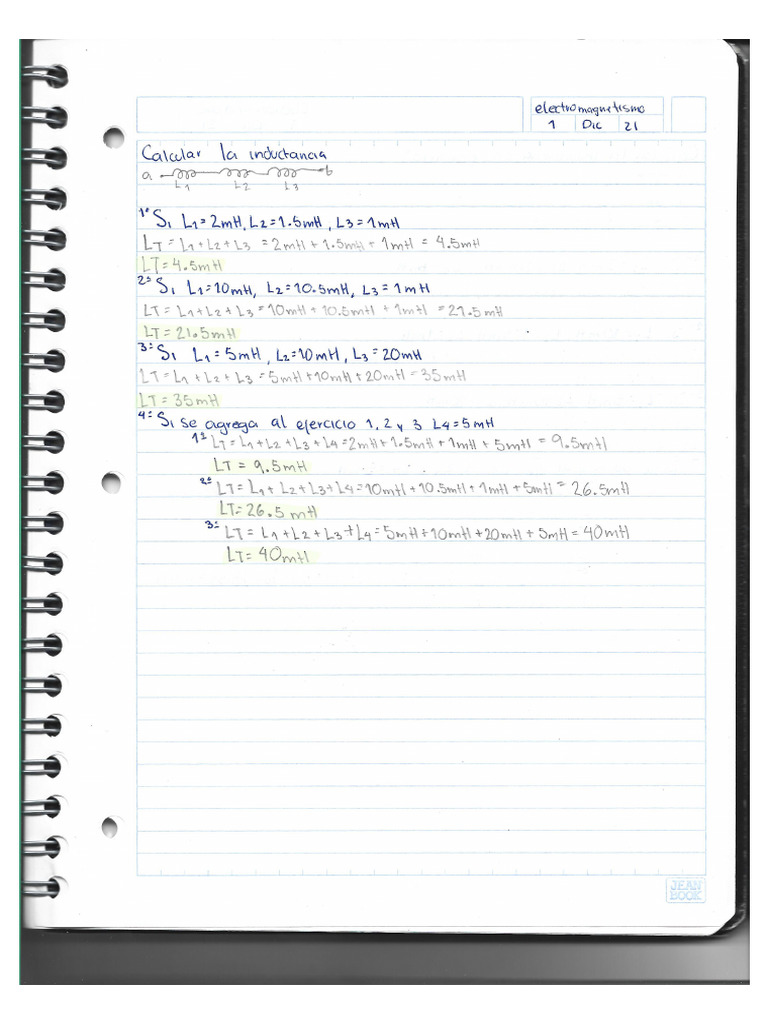 electromagnetismo
1 Dic 21
Calcular la inductancia
a b
L1 L2 L3
1º Si L1=2mH, L2=1.5mH, L3=1mH
LT=L1+L2+L3 =2mH+1.5mH+1mH = 4.5mH
LT=4.5mH
2º Si L1=10mH, L2=10.5mH, L3=1mH
LT=L1+L2+L3=10mH+10.5mH+1mH =21.5mH
LT=21.5mH
3º Si L1=5mH, L2=10mH, L3=20mH
LT=L1+L2+L3=5mH+10mH+20mH=35mH
LT=35mH
4º Si se agrega al ejercicio 1,2 y 3 L4=5mH
1º LT=L1+L2+L3+L4=2mH+1.5mH+1mH+5mH=9.5mH
LT=9.5mH
2º LT=L1+L2+L3+L4=10mH+10.5mH+1mH+5mH=26.5mH
LT=26.5mH
3º LT=L1+L2+L3+L4=5mH+10mH+20mH+5mH=40mH
LT=40mH
JEAN
BOOK